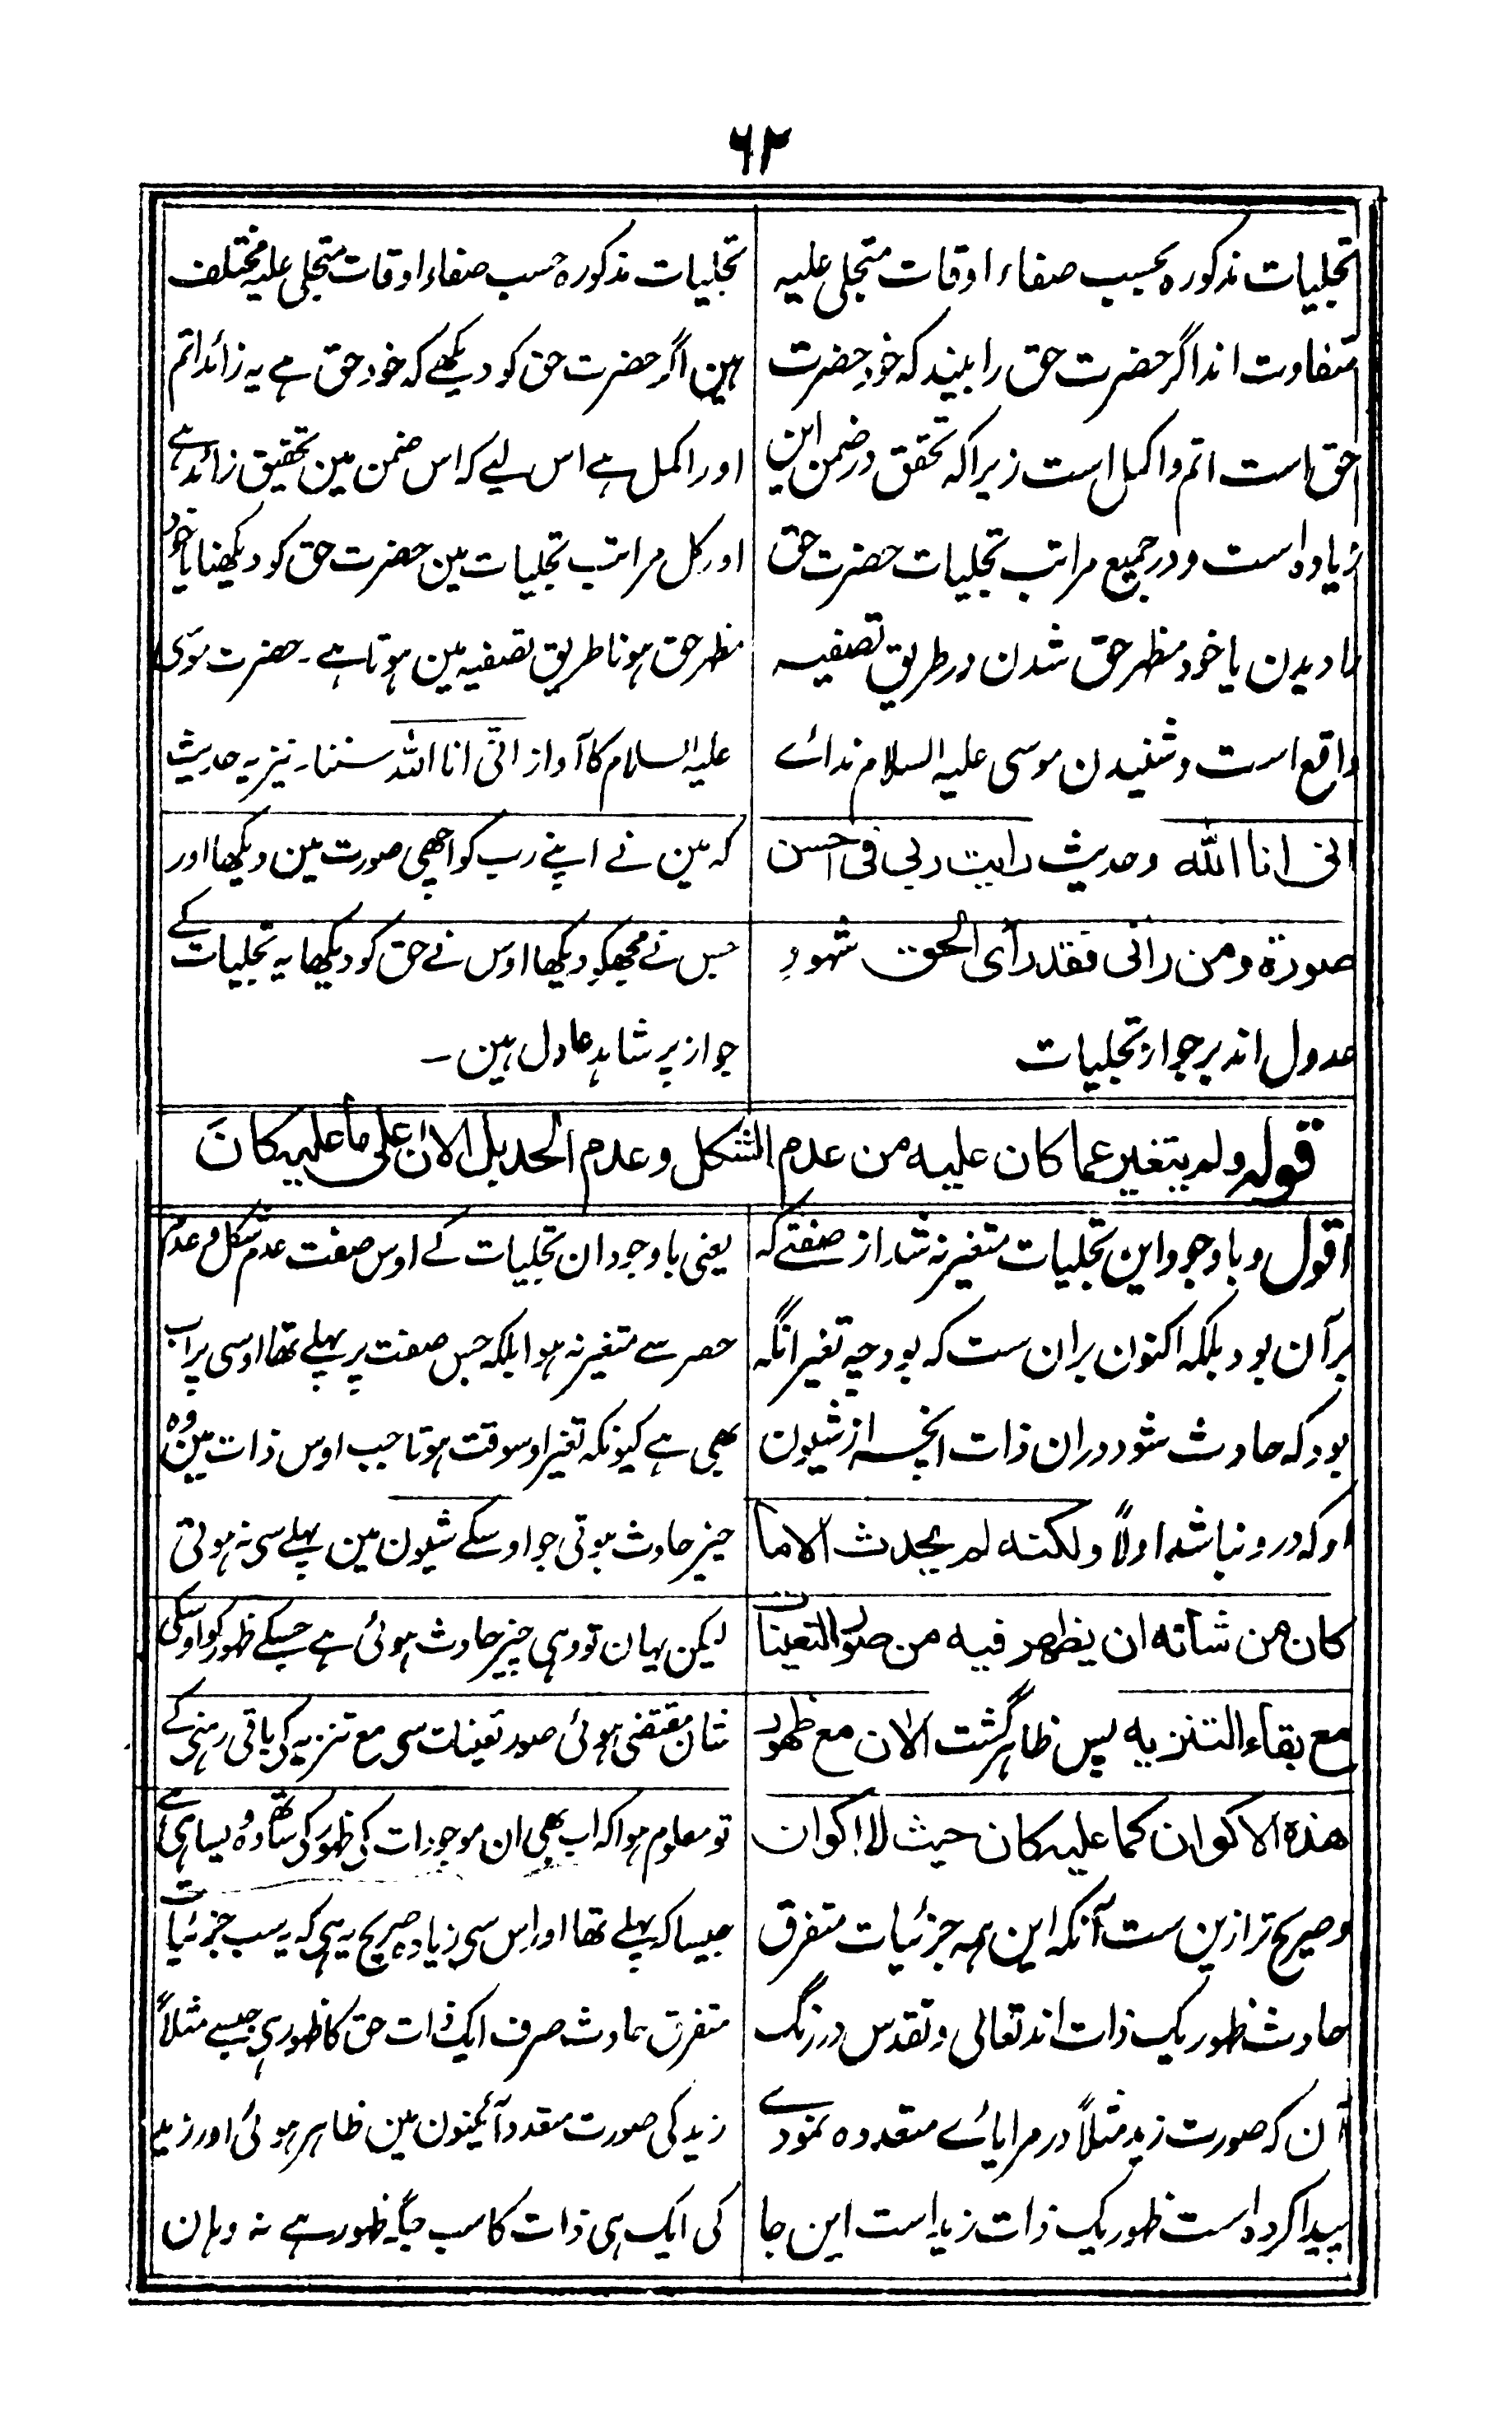 ۶۲
تجلیات مذکورہ بحسب صفاء اوقات متجلی علیہ
متفاوت اند اگر حضرت حق را بیند کہ خود حضرت
حق است اتم و اکمل است زیرا کہ تحقق در ضمن این
زیادہ است و در جمیع مراتب تجلیات حضرت حق
را دیدن یا خود مظہر حق شدن در طریق تصفیہ
واقع است و شنیدن موسی علیہ السلام ندائے
انی انا اللہ وحدیث رایت ربی فی احسن
صورة ومن رانی فقد رأی الحق شہودِ
عدول اند بر جواز تجلیات
تجلیات مذکورہ حسب صفاء اوقات متجلی علیہ مختلف
ہین اگر حضرت حق کو دیکھے کہ خود حق ہے یہ زائد اتم
اور اکمل ہے اس لیے کہ اس ضمن مین تحقیق زائد ہے
اور کل مراتب تجلیات مین حضرت حق کو دیکھنا یا خود
مظہر حق ہونا طریق تصفیہ مین ہوتا ہے ۔ حضرت موسی
علیہ السلام کا آواز انّی انا اللہ سننا ۔ نیز یہ حدیث
کہ مین نے اپنے رب کو اچھی صورت مین دیکھا اور
جس نے مجھکو دیکھا اوس نے حق کو دیکھا یہ تجلیات کے
جواز پر شاہد عادل ہین ۔
قولہ ولم یتغیر عما کان علیہ من عدم الشکل وعدم الحد بل الان علی ما علیہ کانَ
اقول و باوجود این تجلیات متغیر نہ شد از صفتے کہ
بر آن بود بلکہ اکنون بران ست کہ بود چہ تغیر انگہ
بود کہ حادث شود دران ذات آنچہ از شیون
او کہ درو نباشد اولاً ولکنہ لم یحدث الا ما
کان من شأنہ ان یظھر فیہ من صور التعینات
مع بقاء التنزیہ پس ظاہر گشت الان مع ظھور
ھذہ الاکوان کما علیہ کان حیث لا اکوان
و صریح تر ازین ست آنکہ این ہمہ جزئیات متفرق
حادث ظہور یک ذات اند تعالی و تقدس در رنگ
آن کہ صورت زید مثلاً در مرایائے متعددہ نمودے
پیدا کردہ است ظہور یک ذات زید است این جا
یعنی باوجود ان تجلیات کے اوس صفت عدم شکل و عدم
حصر سے متغیر نہ ہوا بلکہ جس صفت پر پہلے تھا اوسی پر اب
بھی ہے کیونکہ تغیر اوسوقت ہوتا جب اوس ذات مین وہ
چیز حادث ہوتی جو اوسکے شیون مین پہلے سی نہ ہوتی
لیکن یہان تو وہی چیز حادث ہوئی ہے جسکے ظہور کو اوسکی
شان مقتضی ہوئی صور تعینات سی مع تنزیہ کی باقی رہنی کے
تو معلوم ہوا کہ اب بھی ان موجودات کی ظہور کی ساتھ وہ ویسا ہی ہے
جیسا کہ پہلے تھا اور اس سی زیادہ صریح یہ ہی کہ یہ سب جزئیات
متفرق حادث صرف ایک ذات حق کا ظہور ہی جیسے مثلاً
زید کی صورت متعدد آئینون مین ظاہر ہوئی اور زید
کی ایک ہی ذات کا سب جگہ ظہور ہے نہ وہان